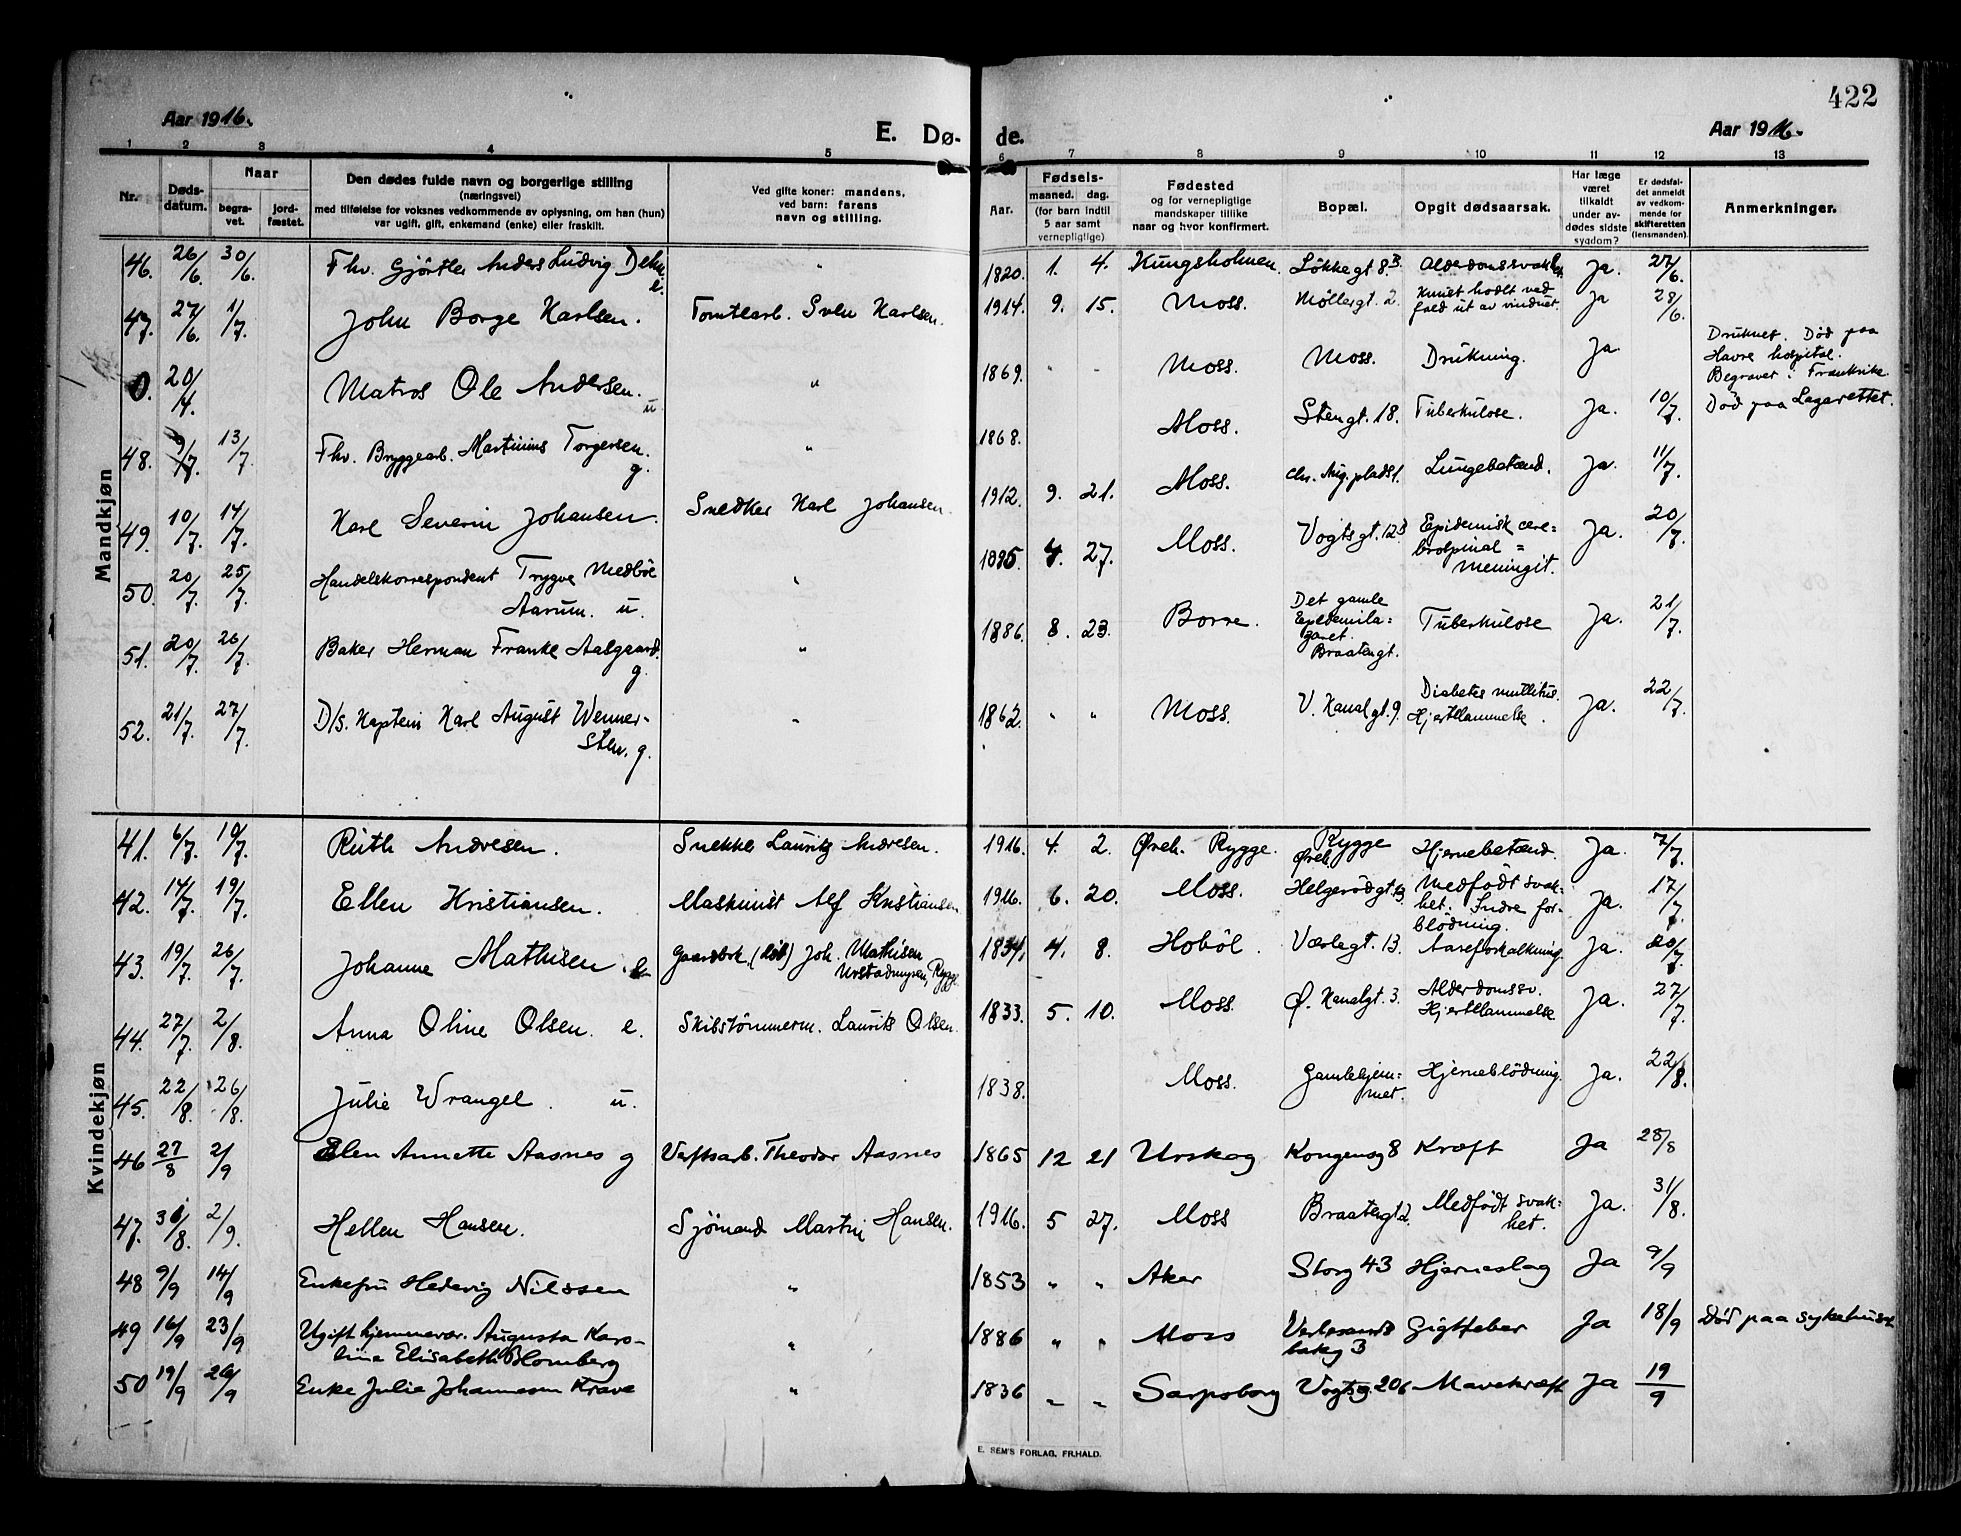 422
Aar 1916. E. Dø- de. Aar 1916.
1 2 3 4 5 6 7 8 9 10 11 12 13
Nr. Døds-datum. Naar begra-vet. jord-fæstet. Den dødes fulde navn og borgerlige stilling (næringsvei) med tilføielse for voksnes vedkommende av oplysning, om han (hun) var ugift, gift, enkemand (enke) eller fraskilt. Ved gifte koner: mandens, ved barn: farens navn og stilling. Aar. Fødsels- maaned. dag. (for barn indtil 5 aar samt vernepligtige) Fødested og for vernepligtige mandskaper tillike naar og hvor konfirmert. Bopæl. Opgit dødsaarsak. Har læge været tilkaldt under av-dødes sidste sygdom? Er dødsfal-det anmeldt av vedkom-mende for skifteretten (lensmanden). Anmerkninger.
Mandkjøn
46. 26/6. 30/6. Fhv. Gjørtler Anders Ludvig Dehn. e. " 1820. 1. 4. Kungsholmen. Løkkegt 8.B Alderdomssvakh. Ja. 27/6.
47. 27/6. 1/7. John Borge Karlsen. Tomtearb. Sven Karlsen. 1914. 9. 15. Moss. Møllergt. 2. Knust hodet ved fald ut av vinduet. Ja 28/6.
0. 20/4. Matros Ole Andersen. u " 1869. " " Moss. Moss. Drukning. Ja Druknet. Død paa Havre hospital. Begravet i Frankrike.
48. 9/7. 13/7. Fhv. Bryggearb. Martinius Torgersen. g. " 1868. Moss. Stengt. 18. Tuberkulose. Ja. 10/7. Død paa Lazarettet.
49. 10/7. 14/7. Karl Severin Johansen. Snedker Karl Johansen. 1912. 9. 21. Moss. Chr. Aug. plads 1. Lungebetænd. Ja. 11/7.
50. 20/7. 25/7. Handelskorrespondent Trygve Medbøe Aarum. u. " 1895. 4. 27. Moss. Vogtsgt. 12B Epidemisk cere= brospinal= meningit. Ja. 20/7.
51. 20/7. 26/7. Baker Herman Franke Aalgaard. g. " 1886. 8. 23. Borre. Det gamle Epidemila= zaret. Braatengt. Tuberkulose Ja. 21/7.
52. 21/7. 27/7. D/s. Kaptein Karl August Wenner- sten. g. " 1862. " " Moss. V. Kanalgt. 9. Diabetes mellitus. Hjertelammelse. Ja. 22/7.
Kvindekjøn
41. 6/7. 10/7. Ruth Andresen. Snekker Lauritz Andresen. 1916. 4. 2. Øreh. Rygge. Rygge Øreh. Hjernebetænd. Ja. 7/7.
42. 14/7. 19/7. Ellen Kristiansen. Maskinist Alf Kristiansen 1916. 6. 20. Moss. Helgerødgt. 13. Medfødt svak- het. Indre for- blødning. Ja. 17/7.
43. 19/7. 26/7. Johanne Mathisen. e Gaardbr. (død) Joh. Mathisen Rygge. 1834. 4. 8. Hobøl. Værlegt. 13. Aareforkalkning. Ja. 20/7.
44. 27/7. 2/8. Anna Oline Olsen. e. Skibstømmerm. Laurits Olsen. 1833. 5. 10. Moss. Ø. Kanalgt. 3. Alderdomssv. Hjertelammelse Ja. 27/7.
45. 22/8. 26/8. Julie Wrangel. u. 1838. Moss. Gamlehjem= met. Hjerneblödning. Ja. 22/8.
46 27/8 2/9 Elen Annette Aasnes g Verftsarb. Theodor Aasnes 1865 12 21 Urskog Kongensg 8 Kræft Ja 28/8
47. 31/8. 2/9. Hellen Hansen. Sjömand Martin Hansen. 1916. 5 27. Moss Braatengt 2. Medfødt svak= het. Ja. 31/8.
48 9/9 14/9 Enkefru Hedevig Nilssen " 1853 " " Aker Storg 43 Hjerneslag Ja 9/9
49 16/9 23/9 Ugift hjemmevær. Augusta Karo- line Elisabeth Blomberg " 1886 " " Moss Verlesands bakg 3 Gigtfeber Ja 18/9 Død paa sykehuset
50 19/9 26/9 Enke Julie Johannesen Krave " 1836 " " Sarpsborg Vogtsg. 20b Mavekræft Ja 19/9
E. SEM'S FORLAG, FR.HALD.